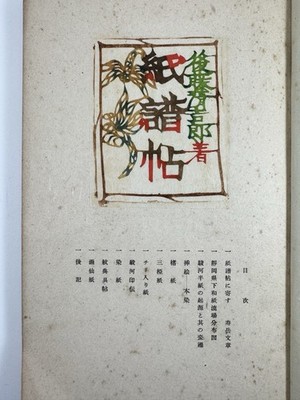 後藤清吉郎著
紙譜帖
目次
一 紙譜帖に寄す 寿岳文章
一 静岡県下和紙漉場分布図
一 駿河半紙の起源と其の変遷
一 挿絵 木染
一 楮紙
一 三椏紙
一 チネ入り紙
一 駿河印伝
一 染紙
一 紋典具帖
一 画仙紙
一 後記